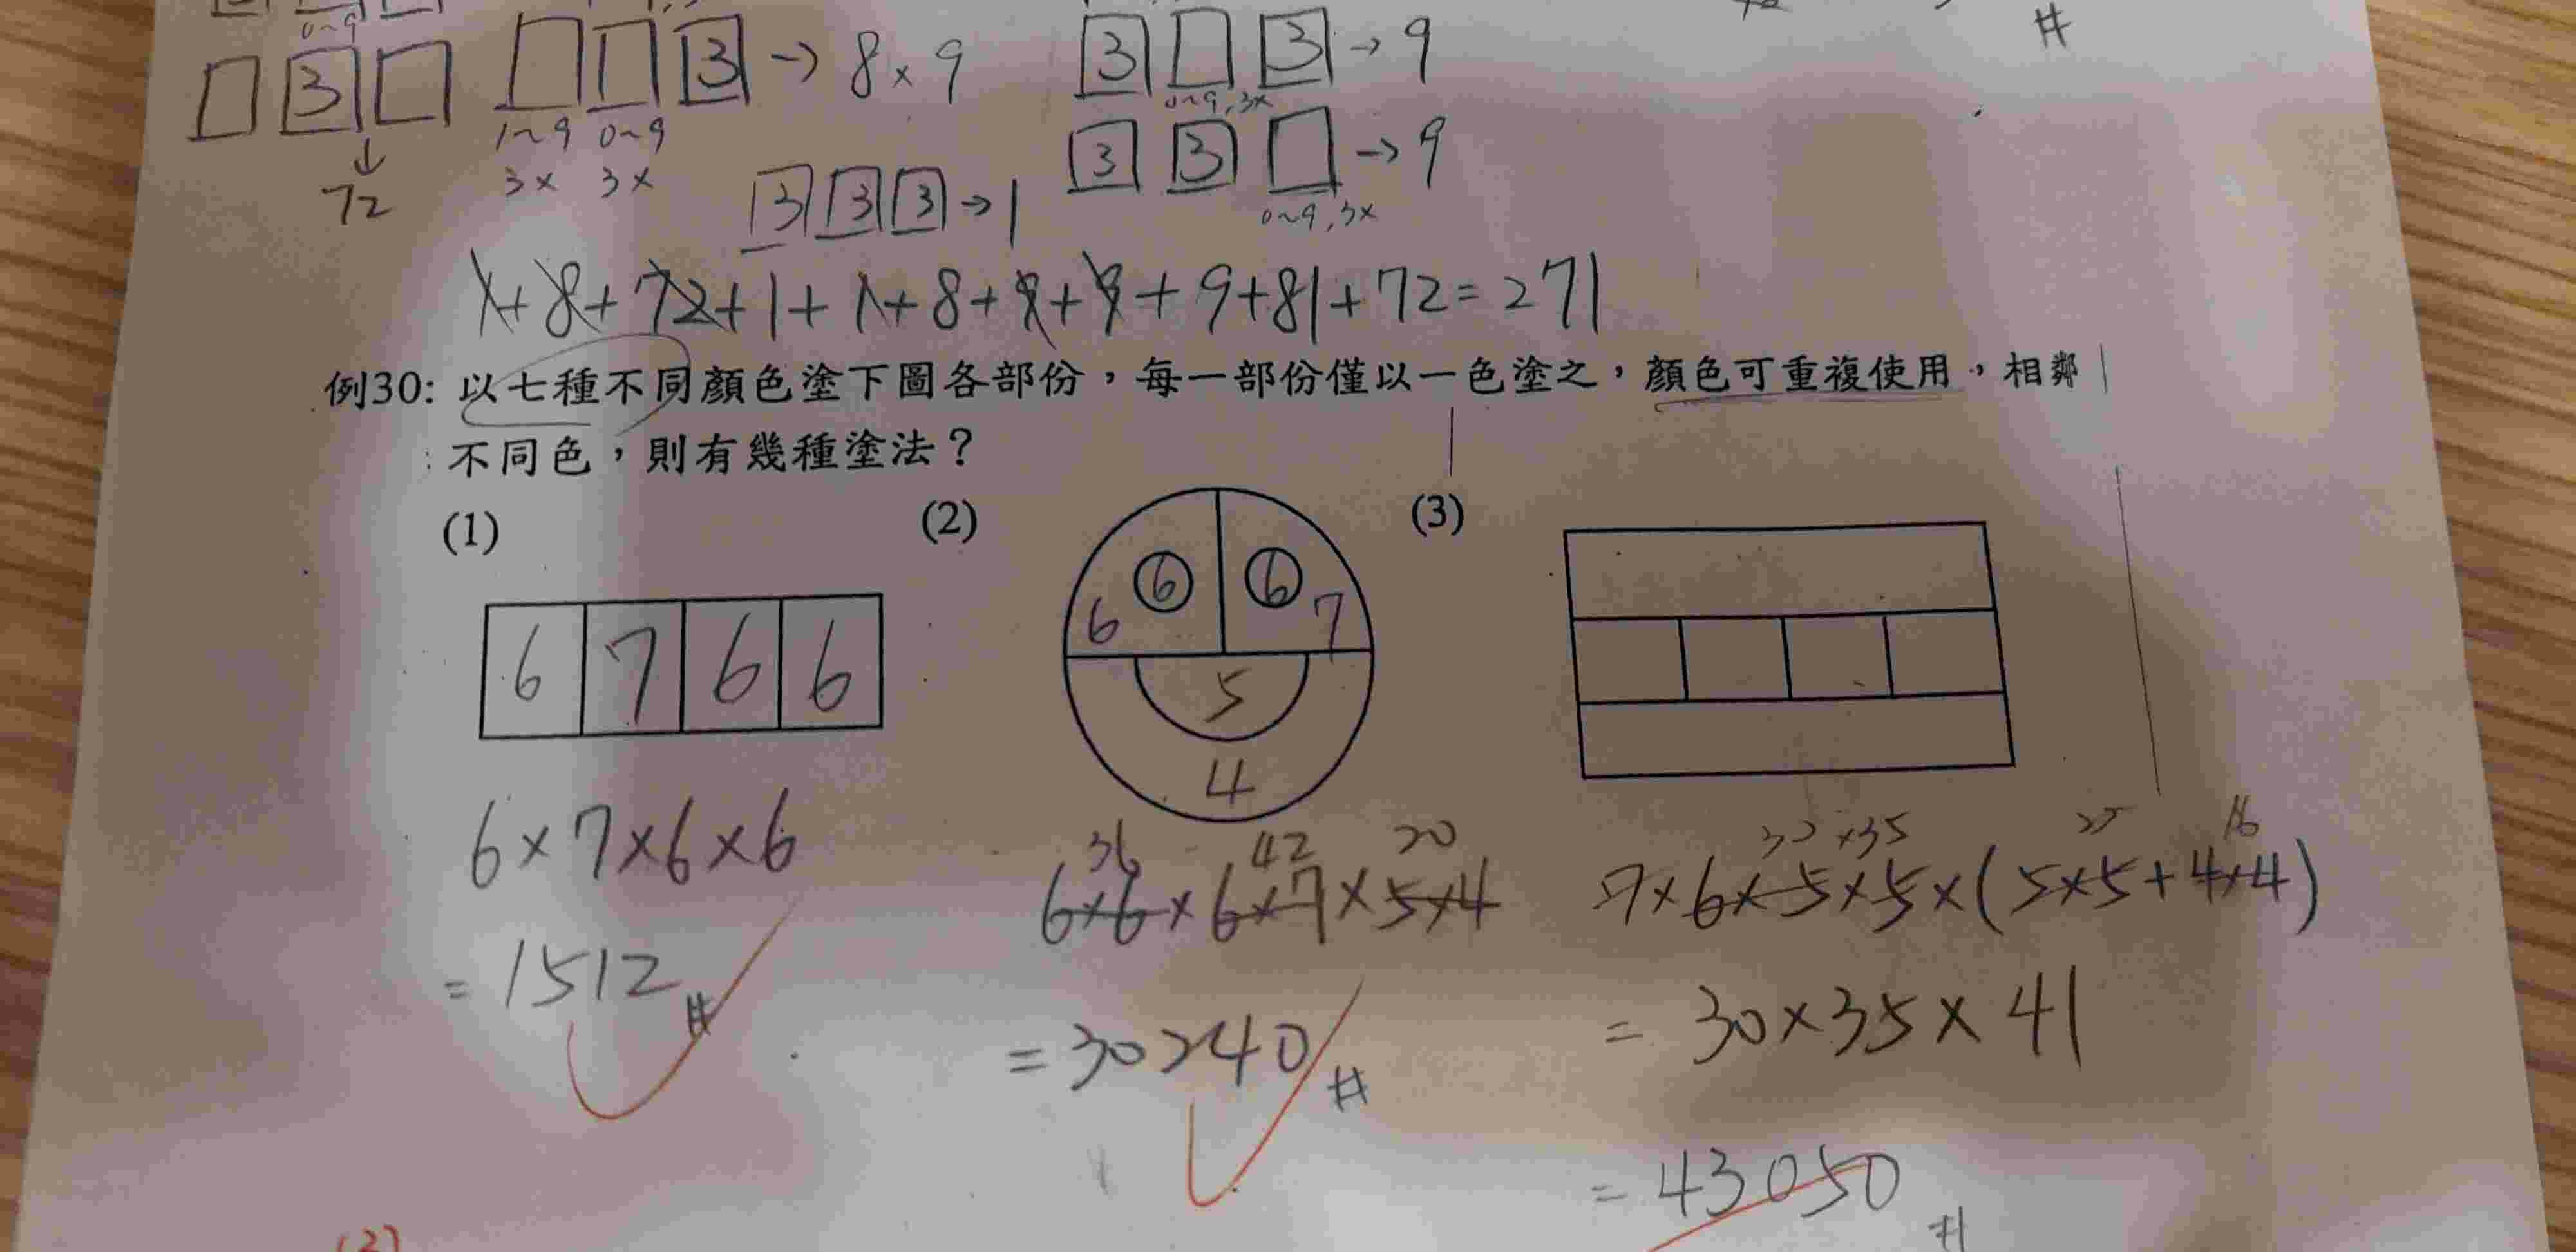 0~9
□ 3 □ □ □ 3 → 8 × 9 3 □ 3 → 9
1~9 0~9 0~9, 3×
↓ 3× 3× 3 3 □ → 9
72 3 3 3 → 1 0~9, 3×
1+8+72+1+1+8+9+9+9+81+72=271
例30: 以七種不同顏色塗下圖各部份，每一部份僅以一色塗之，顏色可重複使用，相鄰
不同色，則有幾種塗法？
(1) (2) (3)
6 6
6 7
6 7 6 6
5
4
36 42 20 30×35 25 16
6×7×6×6 6×6×6×7×5×4 7×6×5×5×(5×5+4×4)
=1512# =30240# =30×35×41
=43050#
(2)